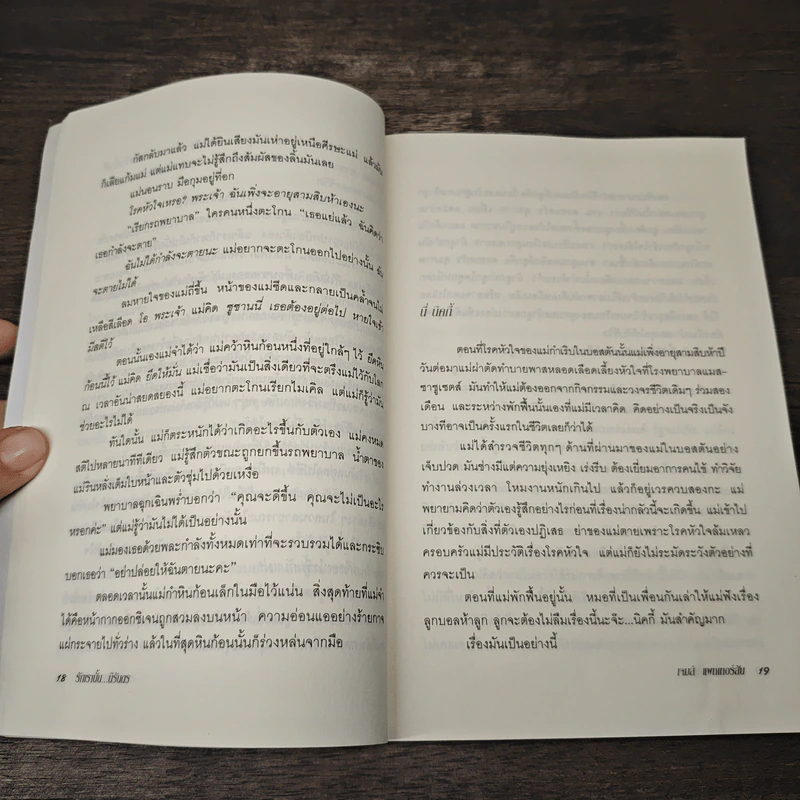 กัสกลับมาแล้ว แม่ได้ยินเสียงมันเห่าอยู่เหนือศีรษะแม่ แล้วมัน
ก็เลียแก้มแม่ แต่แม่แทบจะไม่รู้สึกถึงสัมผัสของลิ้นมันเลย
แม่นอนราบ มือกุมอยู่ที่อก
โรคหัวใจเหรอ? พระเจ้า ฉันเพิ่งจะอายุสามสิบห้าเองนะ
"เรียกรถพยาบาล" ใครคนหนึ่งตะโกน "เธอแย่แล้ว ฉันคิดว่า
เธอกำลังจะตาย"
ฉันไม่ได้กำลังจะตายนะ แม่อยากจะตะโกนออกไปอย่างนั้น ฉัน
จะตายไม่ได้
ลมหายใจของแม่ถี่ขึ้น หน้าของแม่ซีดและกลายเป็นคล้ำจนไม่
เหลือสีเลือด โอ พระเจ้า แม่คิด ซูซานนี่ เธอต้องอยู่ต่อไป หายใจเข้า
มีสติไว้
ตอนนั้นเองแม่จำได้ว่า แม่คว้าหินก้อนหนึ่งที่อยู่ใกล้ๆ ไว้ ยึดหิน
ก้อนนี้ไว้ แม่คิด ยึดให้มั่น แม่เชื่อว่ามันเป็นสิ่งเดียวที่จะตรึงแม่ไว้กับโลก
ณ เวลาอันน่าสยดสยองนี้ แม่อยากตะโกนเรียกไมเคิล แต่แม่ก็รู้ว่ามัน
ช่วยอะไรไม่ได้
ทันใดนั้น แม่ก็ตระหนักได้ว่าเกิดอะไรขึ้นกับตัวเอง แม่คงหมด
สติไปหลายนาทีทีเดียว แม่รู้สึกตัวขณะถูกยกขึ้นรถพยาบาล น้ำตาของ
แม่รินหลั่งเต็มใบหน้าและตัวชุ่มไปด้วยเหงื่อ
พยาบาลฉุกเฉินพร่ำบอกว่า "คุณจะดีขึ้น คุณจะไม่เป็นอะไร
หรอกค่ะ" แต่แม่รู้ว่ามันไม่ได้เป็นอย่างนั้น
แม่มองเธอด้วยพละกำลังทั้งหมดเท่าที่จะรวบรวมได้และกระซิบ
บอกเธอว่า "อย่าปล่อยให้ฉันตายนะคะ"
ตลอดเวลานั้นแม่กำหินก้อนเล็กในมือไว้แน่น สิ่งสุดท้ายที่แม่จำ
ได้คือหน้ากากออกซิเจนถูกสวมลงบนหน้า ความอ่อนแออย่างร้ายกาจ
แผ่กระจายไปทั่วร่าง แล้วในที่สุดหินก้อนนั้นก็ร่วงหล่นจากมือ
18 รักเรานั้น...นิรันดร
นี่ นิคกี้
ตอนที่โรคหัวใจของแม่กำเริบในบอสตันนั้นแม่เพิ่งอายุสามสิบห้าปี
วันต่อมาแม่ผ่าตัดทำบายพาสหลอดเลือดเลี้ยงหัวใจที่โรงพยาบาลแมส-
ซาชูเซตส์ มันทำให้แม่ต้องออกจากกิจกรรมและวงจรชีวิตเดิมๆ ร่วมสอง
เดือน และระหว่างพักฟื้นนั้นเองที่แม่มีเวลาคิด คิดอย่างเป็นจริงเป็นจัง
บางทีอาจเป็นครั้งแรกในชีวิตเลยก็ว่าได้
แม่ได้สำรวจชีวิตทุกๆ ด้านที่ผ่านมาของแม่ในบอสตันอย่าง
เจ็บปวด มันช่างมีแต่ความยุ่งเหยิง เร่งรีบ ต้องเยี่ยมอาการคนไข้ ทำวิจัย
ทำงานล่วงเวลา โหมงานหนักเกินไป แล้วก็อยู่เวรควบสองกะ แม่
พยายามคิดว่าตัวเองรู้สึกอย่างไรก่อนที่เรื่องน่ากลัวนี้จะเกิดขึ้น แม่เข้าไป
เกี่ยวข้องกับสิ่งที่ตัวเองปฏิเสธ ย่าของแม่ตายเพราะโรคหัวใจล้มเหลว
ครอบครัวแม่มีประวัติเรื่องโรคหัวใจ แต่แม่ก็ยังไม่ระมัดระวังตัวอย่างที่
ควรจะเป็น
ตอนที่แม่พักฟื้นอยู่นั้น หมอที่เป็นเพื่อนกันเล่าให้แม่ฟังเรื่อง
ลูกบอลห้าลูก ลูกจะต้องไม่ลืมเรื่องนี้นะจ๊ะ...นิคกี้ มันสำคัญมาก
เรื่องมันเป็นอย่างนี้
เจมส์ แพตเทอร์สัน 19